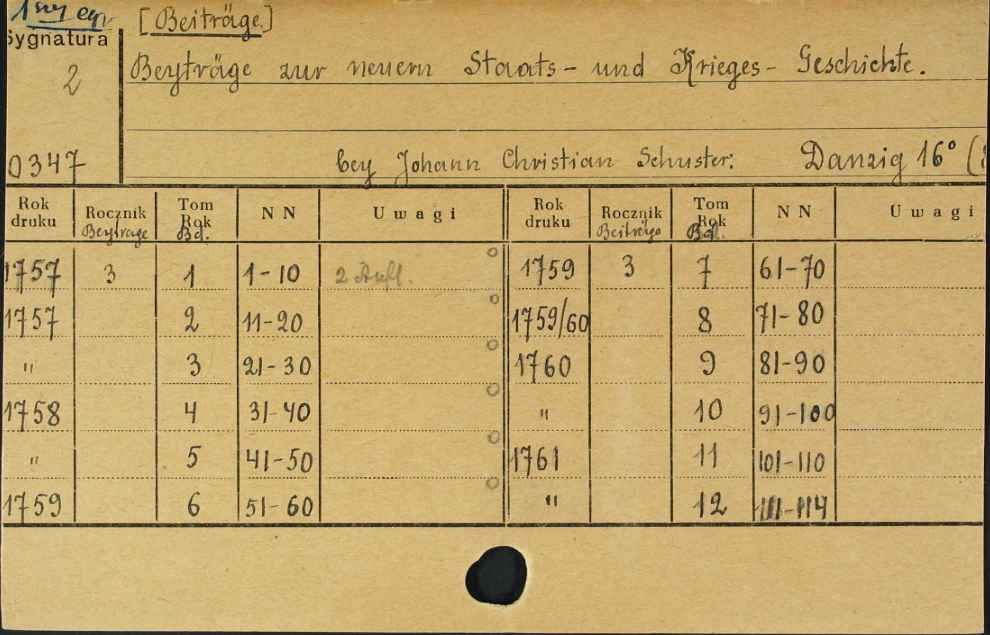 1szy eg. [Beiträge.]
Sygnatura
2 Beyträge zur neuern Staats- und Krieges- Geschichte.
0347 bey Johann Christian Schuster: Danzig 16° (
Rok druku Rocznik Beytrage Tom Rok Bd. NN Uwagi Rok druku Rocznik Beiträge Tom Rok Bd. NN Uwagi
1757 3 1 1-10 2 Aufl. 1759 3 7 61-70
1757 2 11-20 1759/60 8 71-80
" 3 21-30 1760 9 81-90
1758 4 31-40 " 10 91-100
" 5 41-50 1761 11 101-110
1759 6 51-60 " 12 111-114